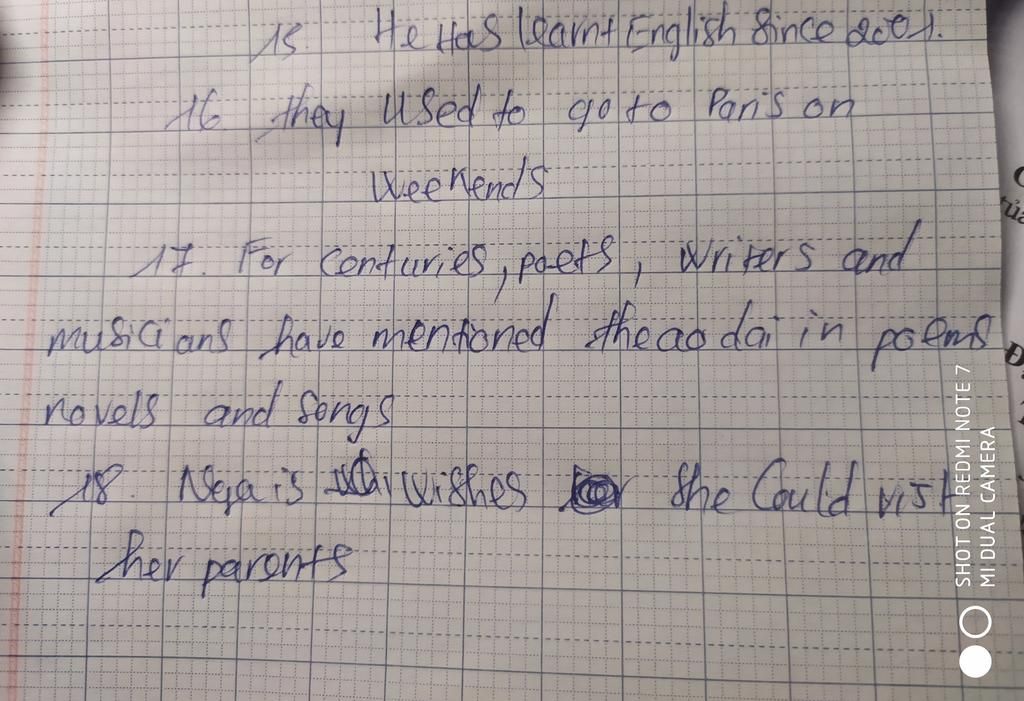 15. He Has learnt English Since 2001.
16 they used to go to Paris on
Weekends
17. For Centuries, poets, writers and
musicians have mentioned the ao dai in poems
novels and songs
18. Nga is wishes she Could visit
her parents
SHOT ON REDMI NOTE 7
MI DUAL CAMERA